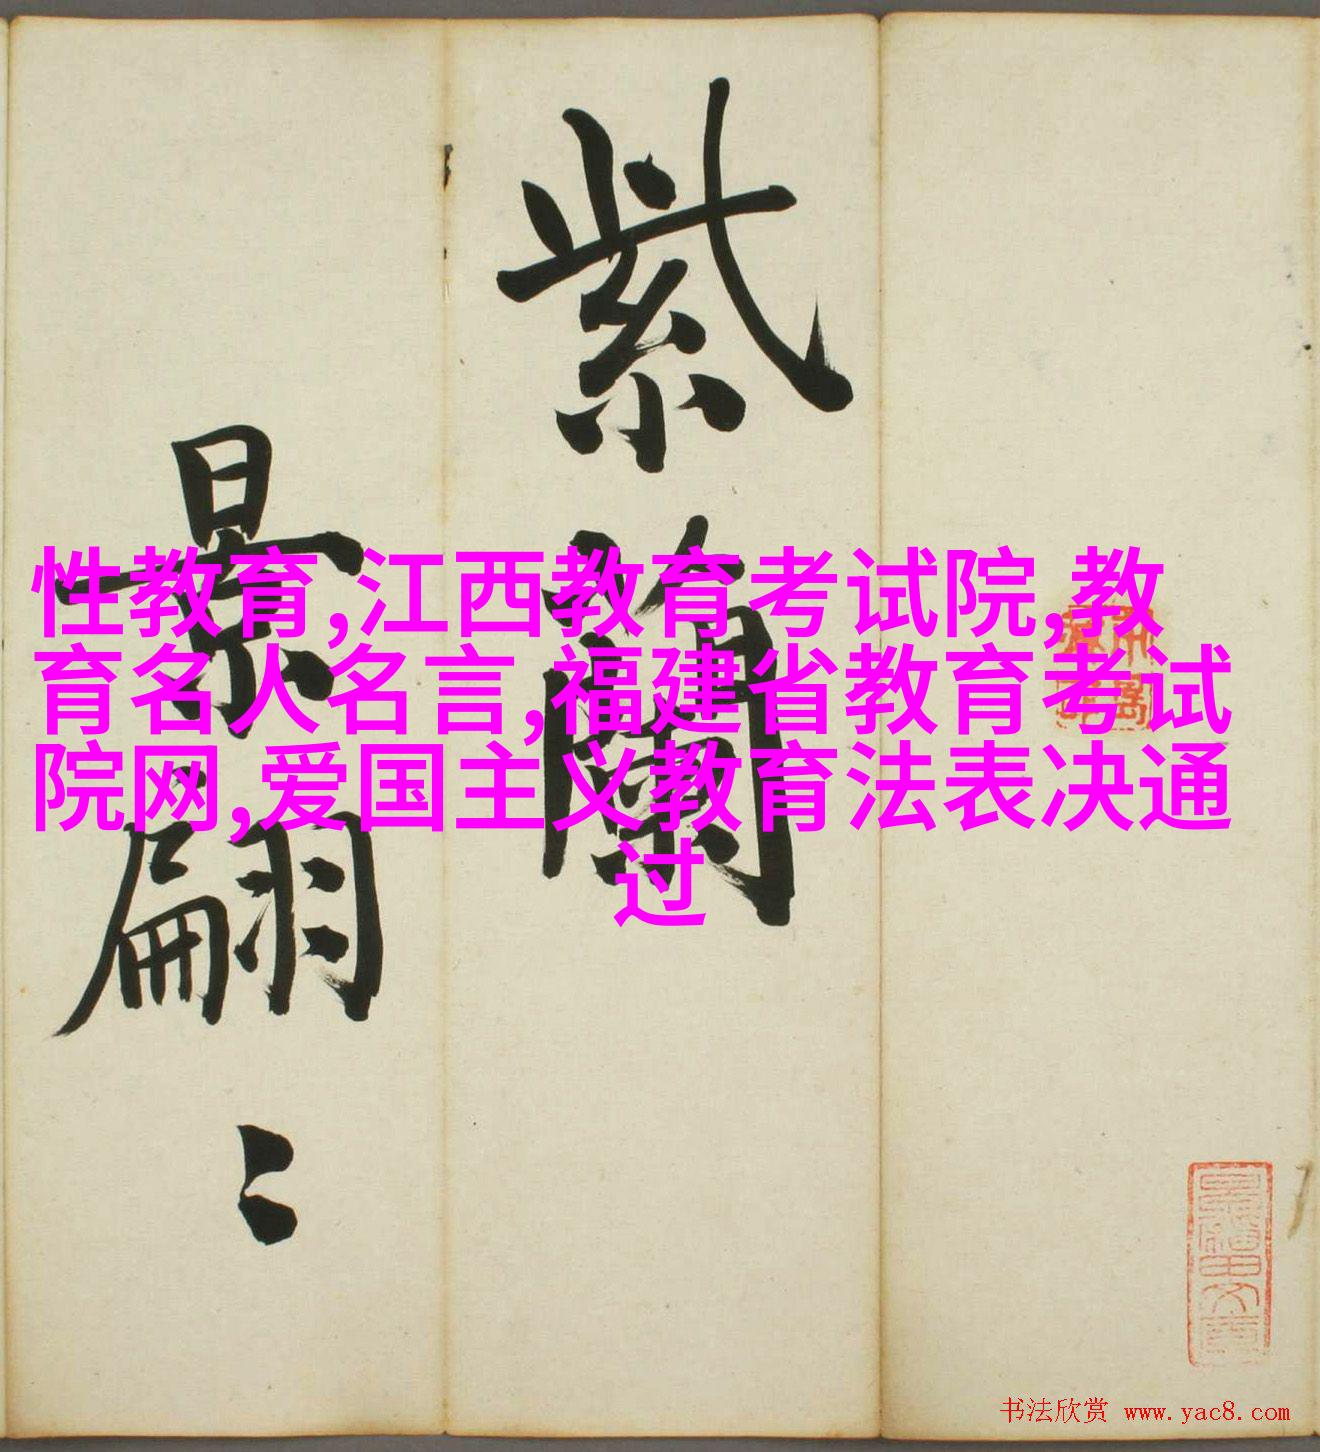 紫蘭
景翩〻
性教育,江西教育考试院,教
育名人名言,福建省教育考试
院网,爱国主义教育法表决通
过
书法欣赏 www.yac8.com